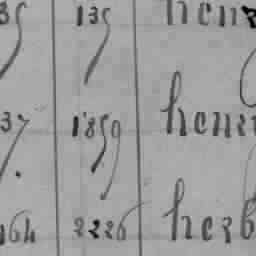 35 135 henr
37 1859 henri
164 2226 herb